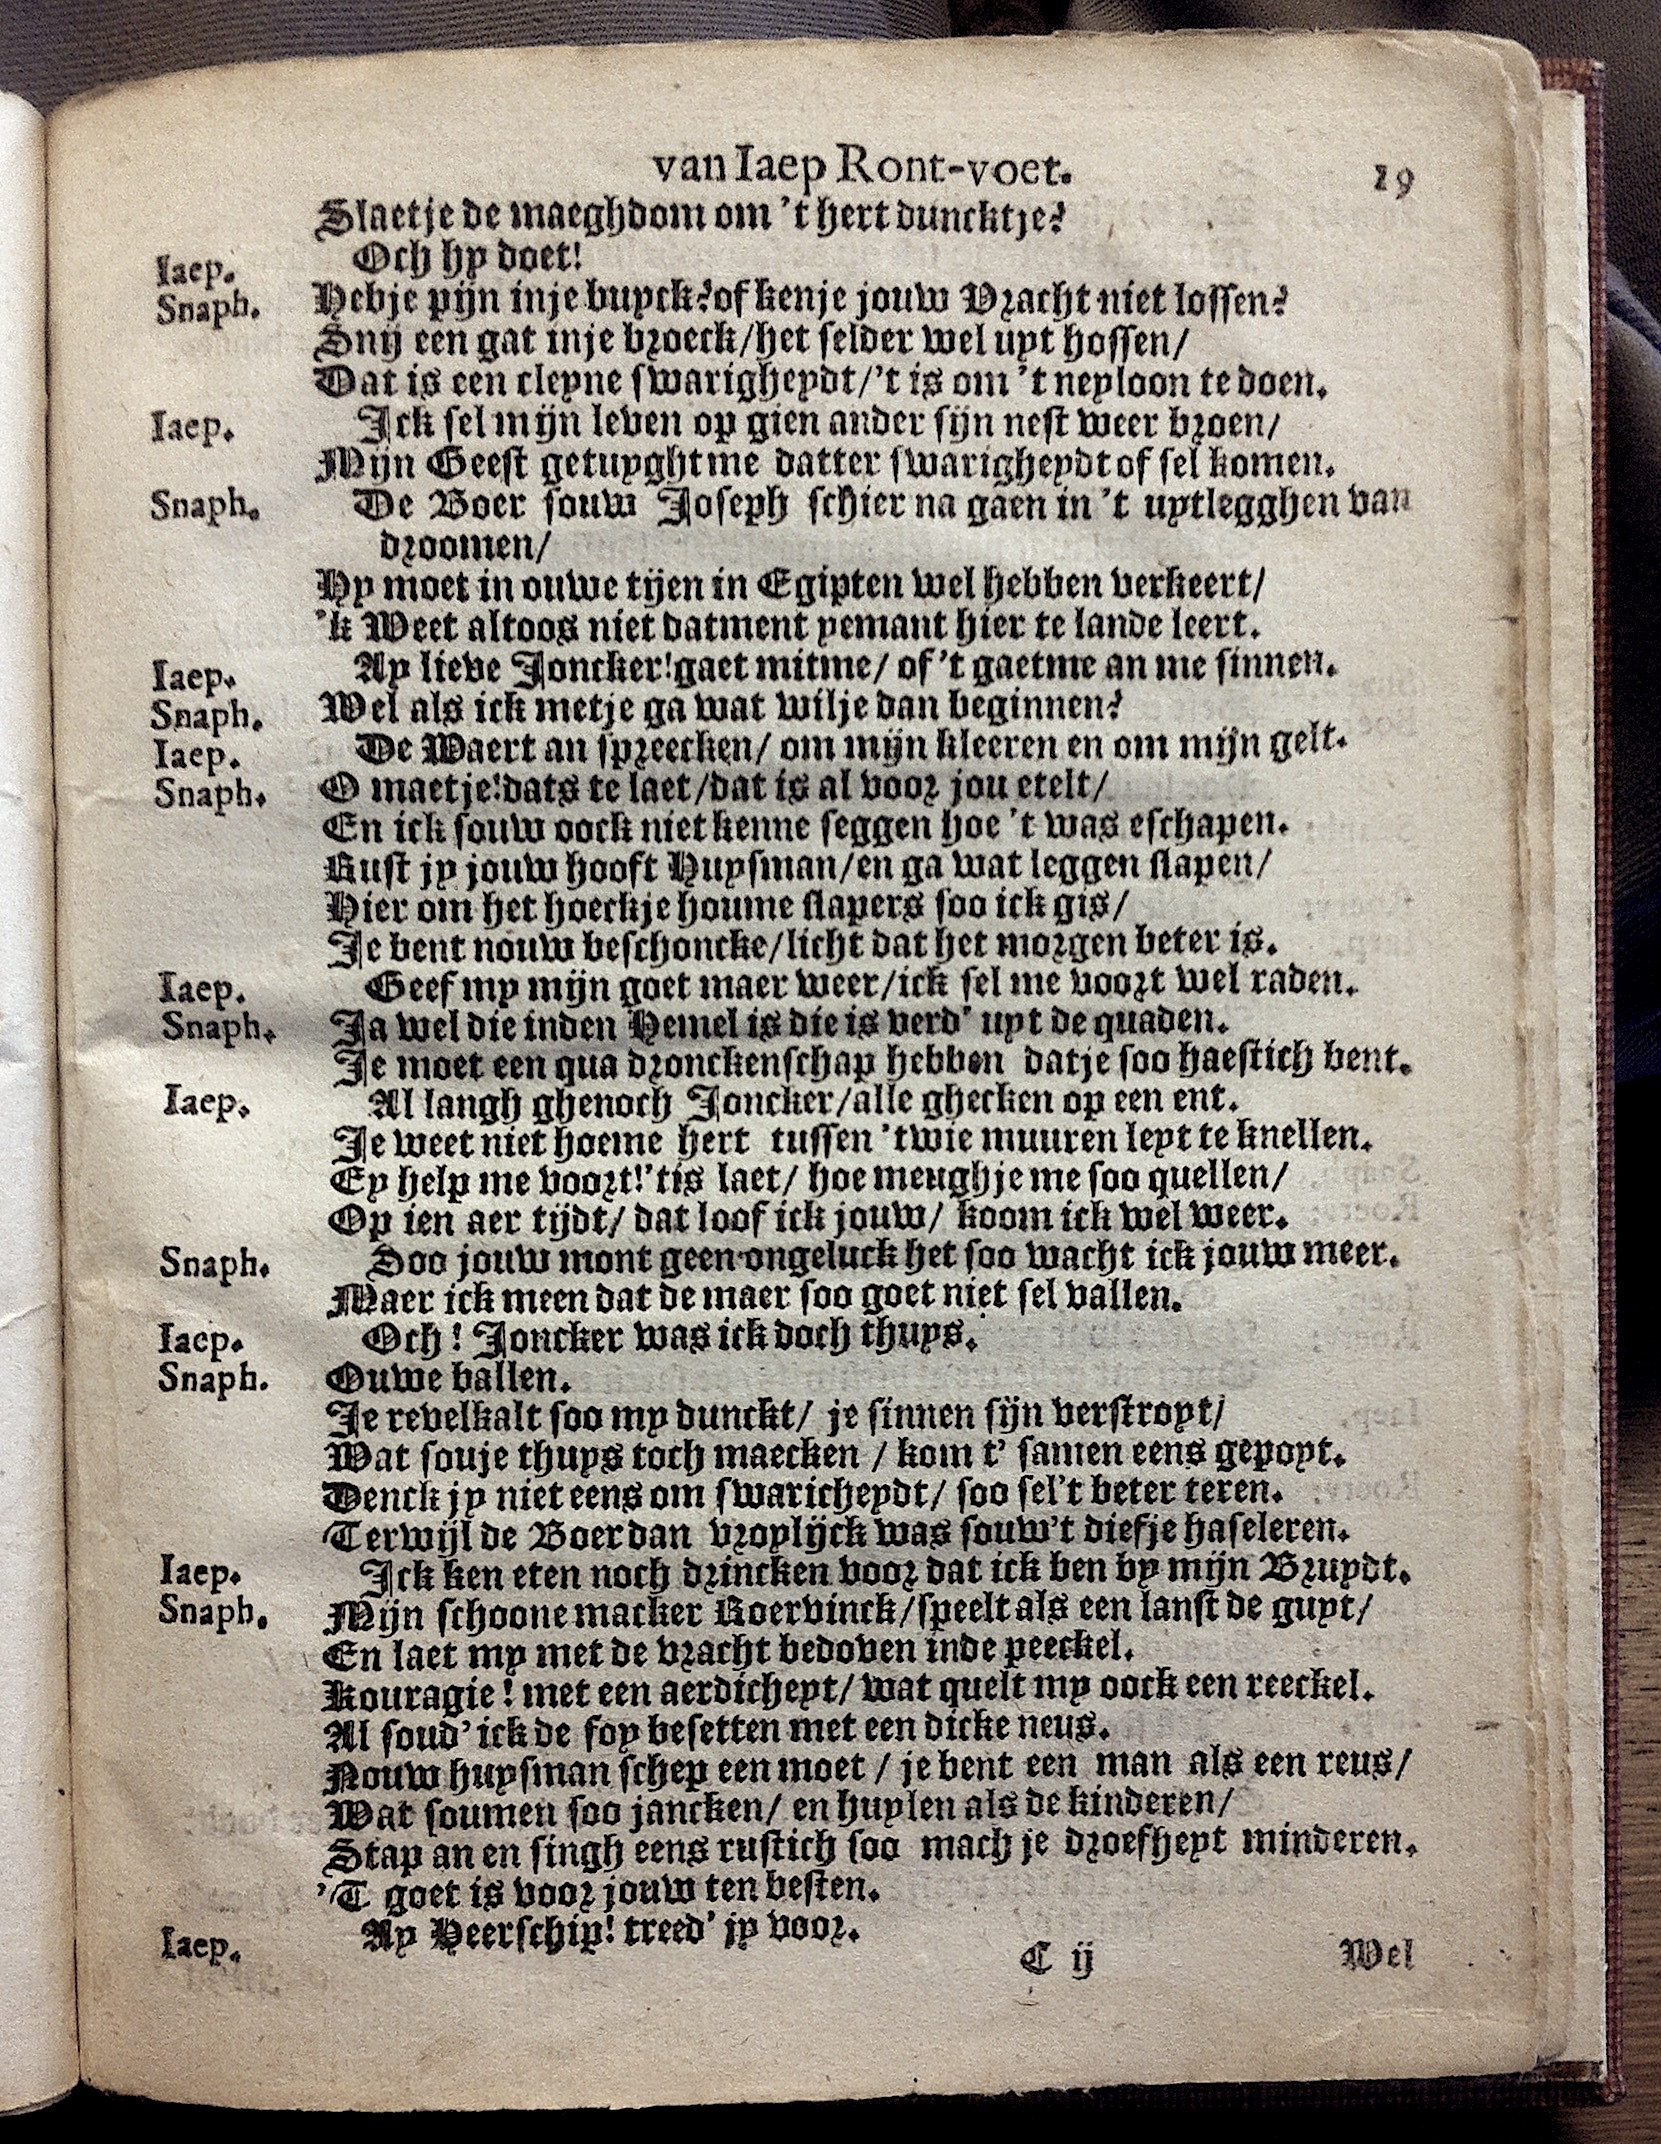 van Iaep Ront-voet. 19
Slaetje de maeghdom om 't hert duncktje?
Iaep. Och hy doet!
Snaph. Hebje pijn inje buyck? of kenje jouw Vracht niet lossen?
Snij een gat inje broeck/het selder wel uyt hossen/
Dat is een cleyne swarigheydt/'t is om 't neyloon te doen.
Iaep. Ick sel mijn leven op gien ander sijn nest weer broen/
Mijn Geest getuyghtme datter swarigheydt of sel komen.
Snaph. De Boer souw Joseph schier na gaen in 't uytlegghen van
droomen/
Hy moet in ouwe tijen in Egipten wel hebben verkeert/
'k Weet altoos niet datment yemant hier te lande leert.
Iaep. Ay lieve Joncker! gaet mitme/ of 't gaetme an me sinnen.
Snaph. Wel als ick metje ga wat wilje dan beginnen?
Iaep. De Waert an spreecken/ om mijn kleeren en om mijn gelt.
Snaph. O maetje! dats te laet/dat is al voor jou etelt/
En ick souw oock niet kenne seggen hoe 't was eschapen.
Rust jy jouw hooft Huysman/en ga wat leggen slapen/
Hier om het hoeckje houme slapers soo ick gis/
Je bent nouw beschoncke/licht dat het morgen beter is.
Iaep. Geef my mijn goet maer weer/ick sel me voort wel raden.
Snaph. Ja wel die inden Hemel is die is verd' uyt de quaden.
Je moet een qua dronckenschap hebben datje soo haestich bent.
Iaep. Al langh ghenoch Joncker/alle ghecken op een ent.
Je weet niet hoeme hert tussen 'twie muuren leyt te knellen.
Ey help me voort!'tis laet/ hoe meughje me soo quellen/
Op ien aer tijdt/ dat loof ick jouw/ koom ick wel weer.
Snaph. Soo jouw mont geen ongeluck het soo wacht ick jouw meer.
Maer ick meen dat de maer soo goet niet sel vallen.
Iaep. Och! Joncker was ick doch thuys.
Snaph. Ouwe ballen.
Je revelkalt soo my dunckt/ je sinnen sijn verstroyt/
Wat souje thuys toch maecken / kom t' samen eens gepoyt.
Denck jy niet eens om swaricheydt/ soo sel't beter teren.
Terwijl de Boer dan vroylijck was souw't diefje haseleren.
Iaep. Ick ken eten noch drincken voor dat ick ben by mijn Bruydt.
Snaph. Mijn schoone macker Roervinck/speelt als een lanst de guyt/
En laet my met de vracht bedoven inde peeckel.
Kouragie! met een aerdicheyt/ wat quelt my oock een reeckel.
Al soud' ick de foy besetten met een dicke neus.
Nouw huysman schep een moet / je bent een man als een reus/
Wat soumen soo jancken/ en huylen als de kinderen/
Stap an en singh eens rustich soo mach je droefheyt minderen.
'T goet is voor jouw ten besten.
Iaep. Ay Heerschip! treed' jy voor.
C ij Wel